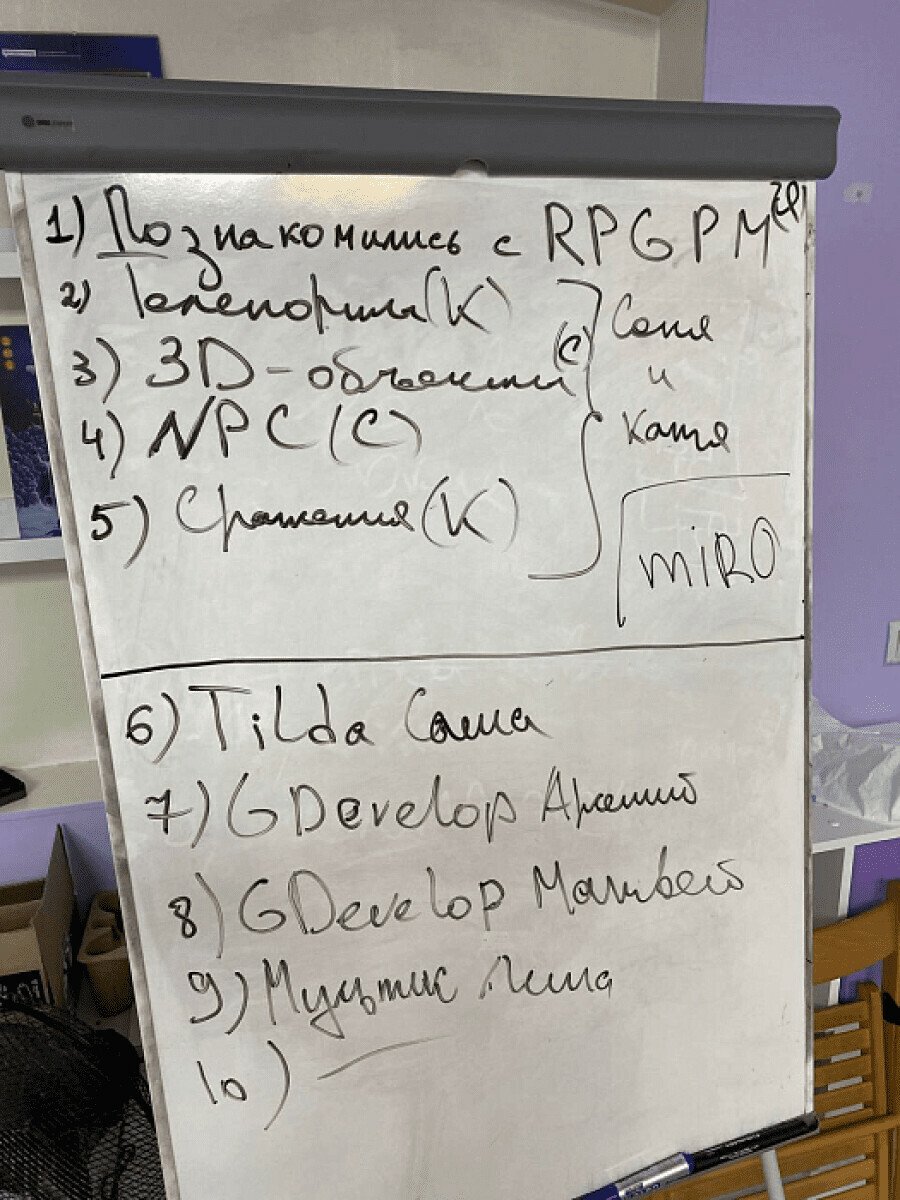 1) Познакомились с RPGPM
2) Телепорты (К)
3) 3D-объекты (С)
4) NPC (С)
5) Сражения (К)
Соня
и
Катя
MIRO
6) Tilda Саша
7) GDevelop Арсений
8) GDevelop Матвей
9) Мультик Лиша
10) —